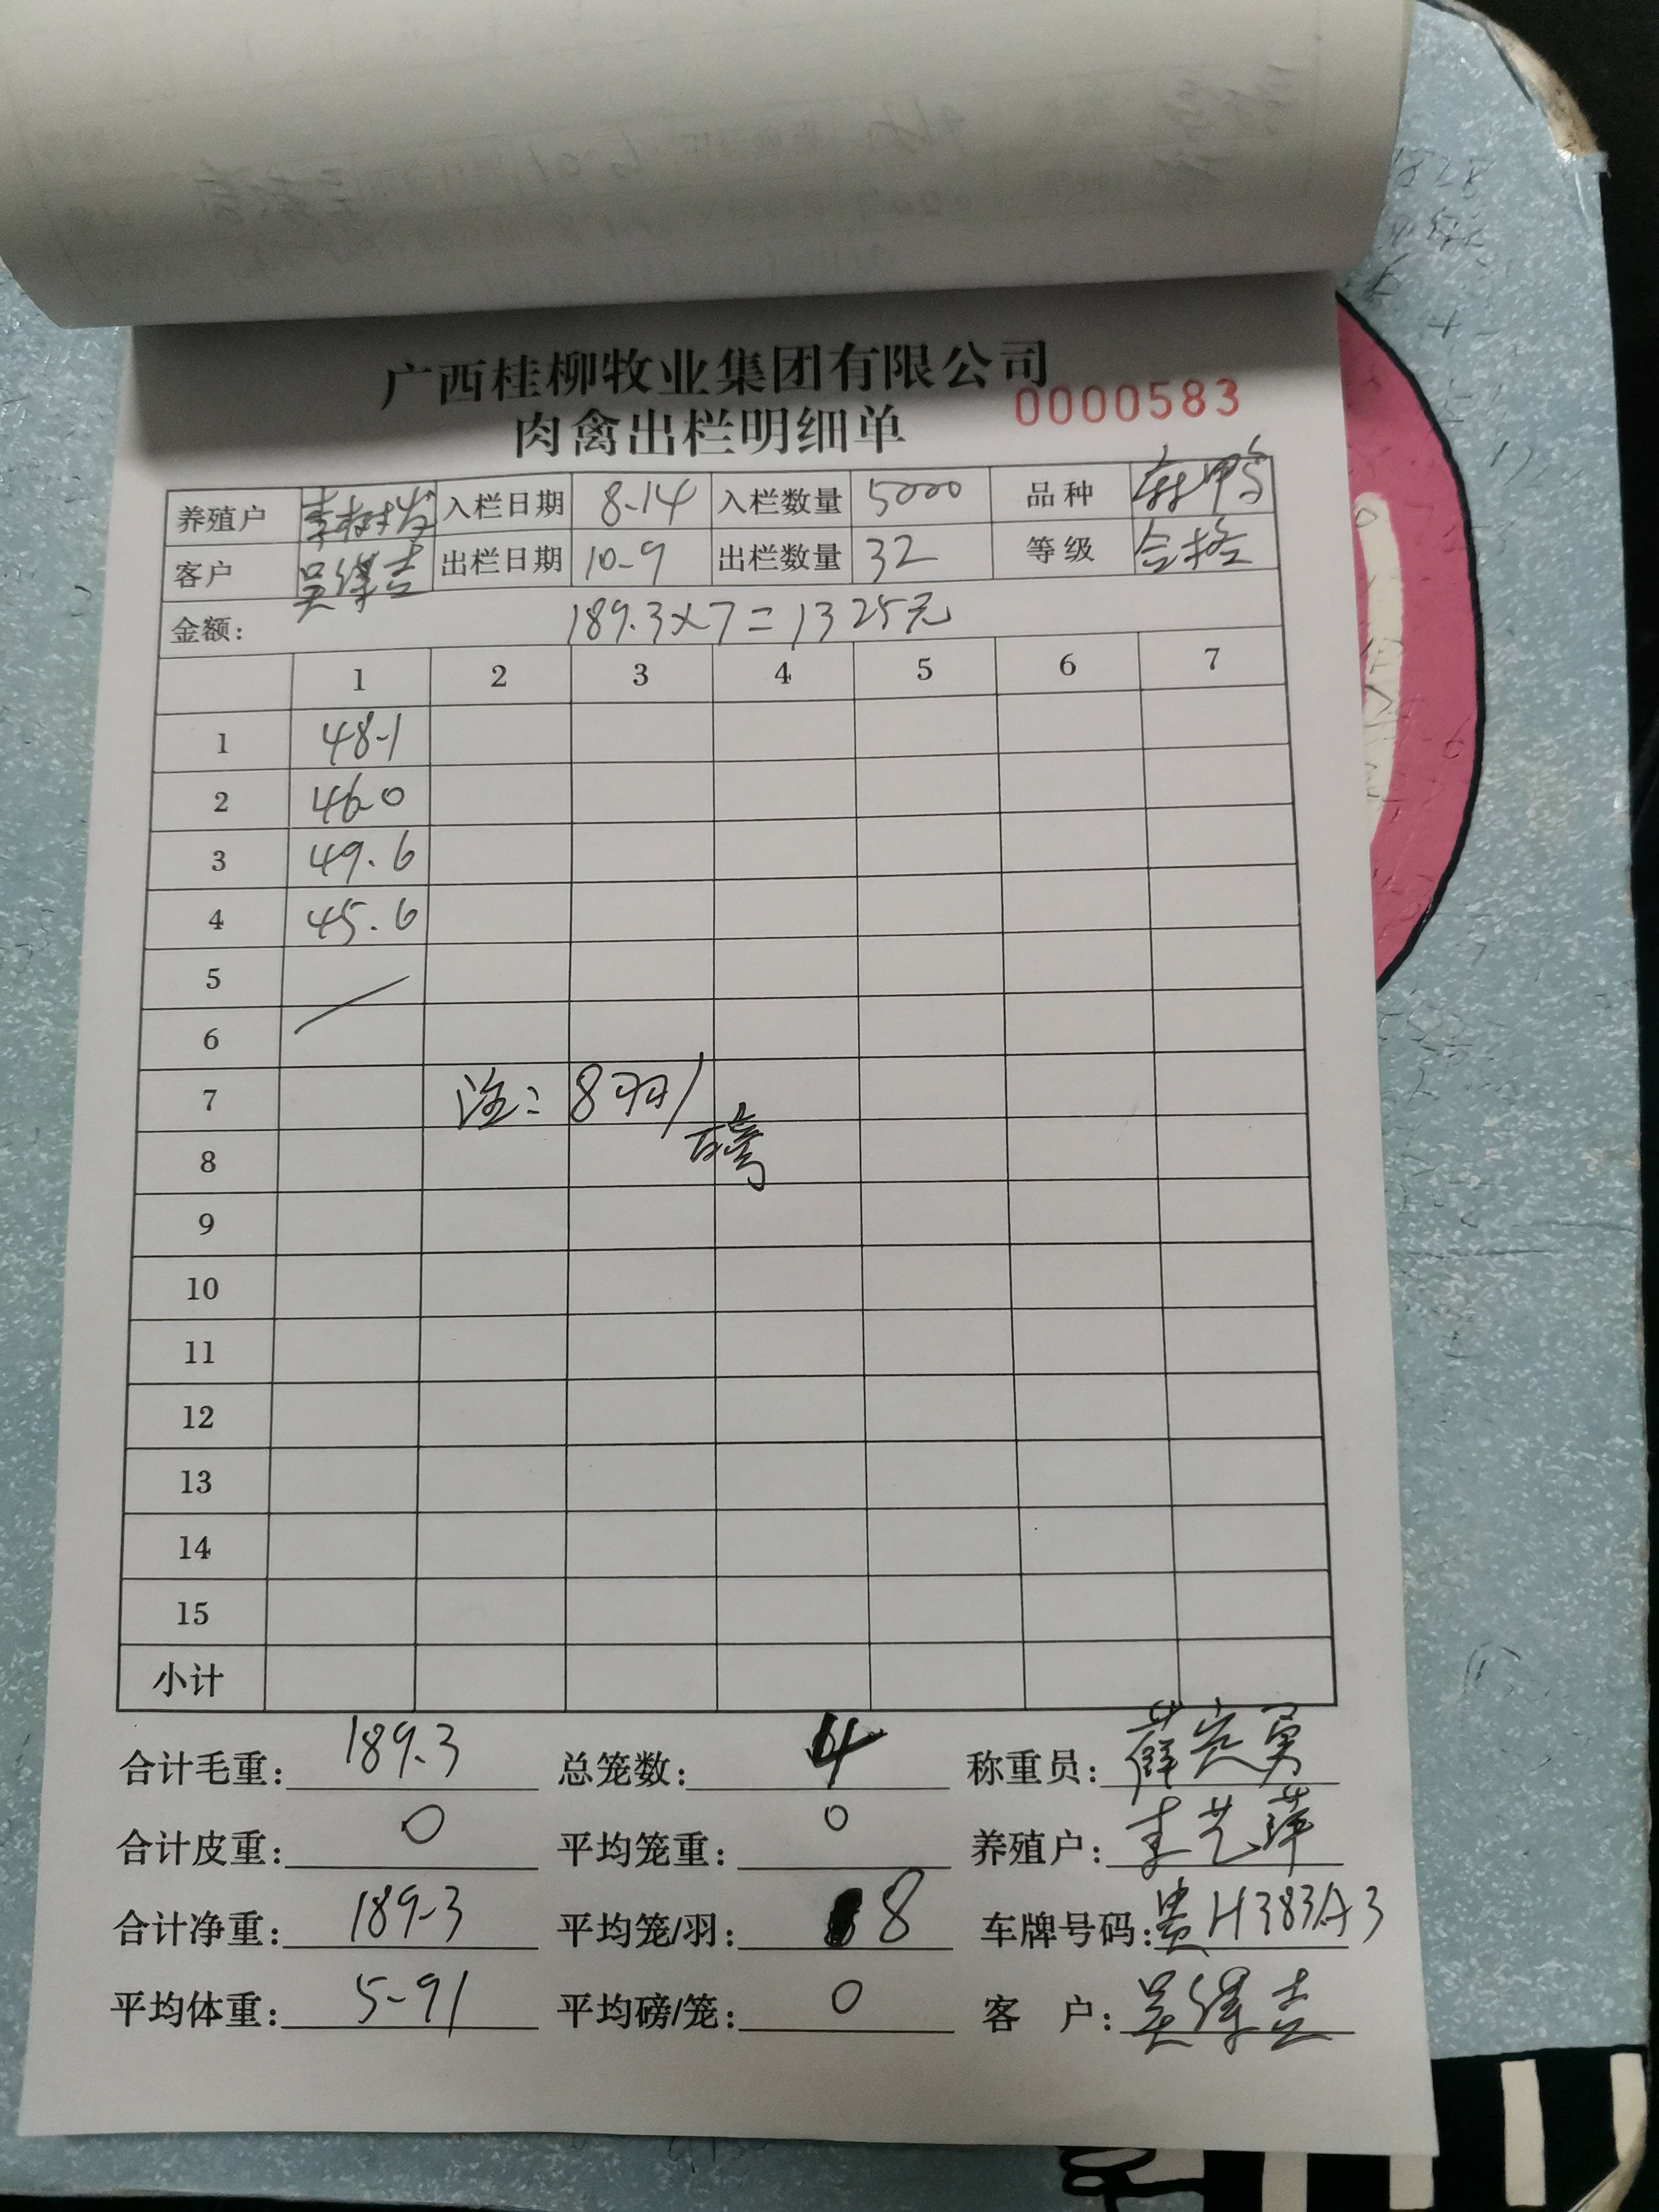 广西桂柳牧业集团有限公司
肉禽出栏明细单 0000583
养殖户 李树发 入栏日期 8-14 入栏数量 5000 品种 麻鸭
客户 吴泽吉 出栏日期 10-9 出栏数量 32 等级 合格
金额: 189.3×7=1325元
1 2 3 4 5 6 7
1 48-1
2 46.0
3 49.6
4 45.6
5
6
7 注:8羽/
8 磅
9
10
11
12
13
14
15
小计
合计毛重: 189.3 总笼数: 4 称重员: 薛宾勇
合计皮重: 0 平均笼重: 0 养殖户: 李艺萍
合计净重: 189-3 平均笼/羽: 8 车牌号码: 贵H383A3
平均体重: 5-91 平均磅/笼: 0 客 户: 吴泽吉